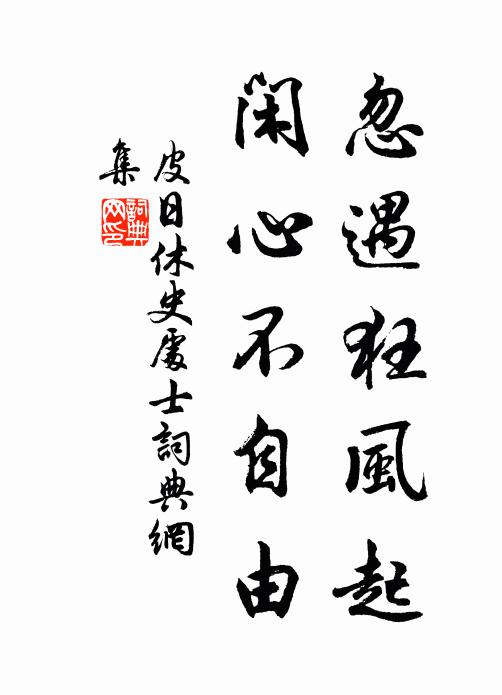 忽遇狂風起
閑心不自由
皮日休史處士詞典網
集
詞典网印